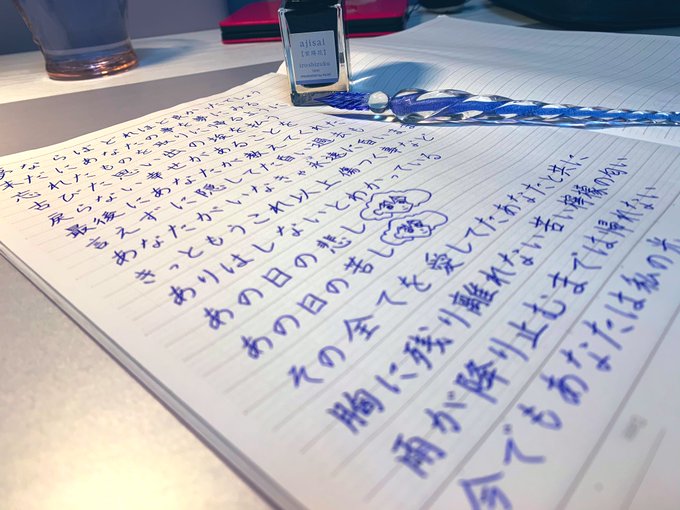 ajisai
【紫陽花】
iroshizuku
ならばどれほど
未だにあなたの事を夢に
忘れたものを取りに帰るように
古びた思い出の埃を払う
戻らない幸せがあることを
最後にあなたが教えてくれた
言えずに隠してた昏い過去も
あなたがいなきゃ永遠に昏い
きっともうこれ以上傷つく事など
ありはしないとわかっている
あの日の悲し
あの日の苦し
その全てを愛してたあなたと共に
胸に残り離れない苦い檸檬の匂い
雨が降り止むまでは帰れない
今でもあなたは私の